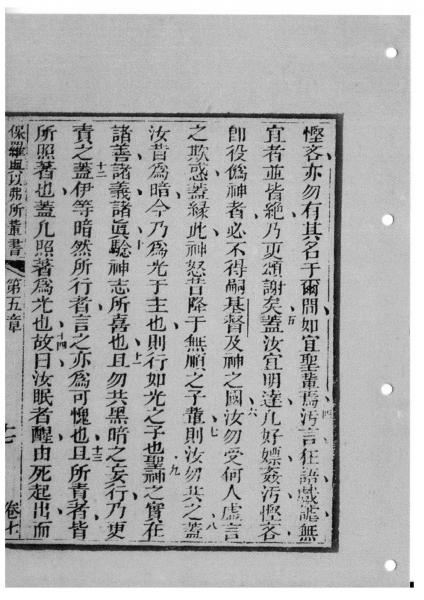 慳吝亦勿有其名于爾間如宜聖輩焉汚言狂語戲謔無
四
宜者並皆絕乃更頌謝矣蓋汝宜明達凡好嫖姦汚慳吝
五
卽役僞神者必不得嗣基督及神之國汝勿受何人虛言
六
之欺惑蓋緣此神怒昔降于無順之子輩則汝勿共之蓋
七 八
汝昔爲暗今乃爲光于主也則行如光之子也聖神之實在
九
諸善諸義諸眞騐神志所喜也且勿共黑暗之妄行乃更
十 十一
責之蓋伊等暗然所行者言之亦爲可愧也且所責者皆
十二 十三
所照著也蓋凡照著爲光也故曰汝眠者醒由死起出而
十四
保羅與以弗所輩書 第五章 七 卷十